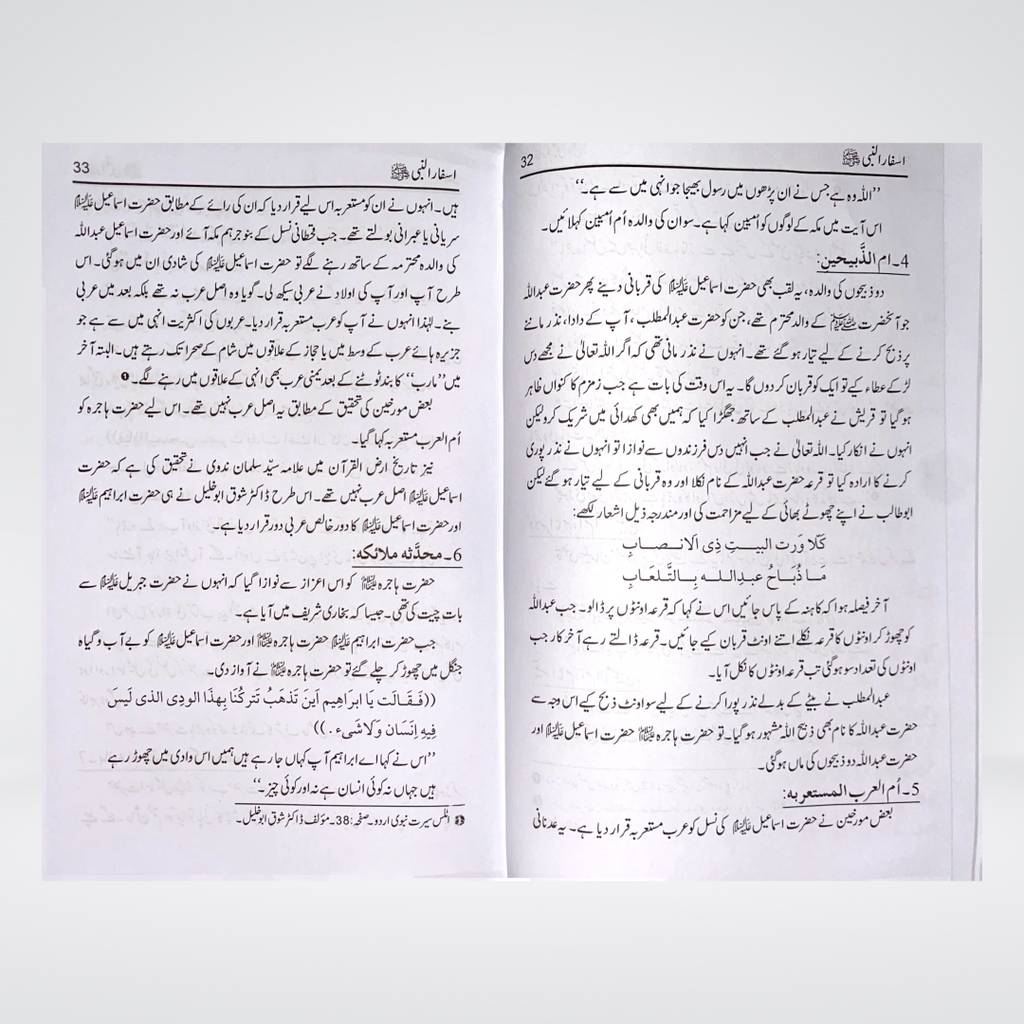 اسفار النبی ﷺ 32
’’اللہ وہ ہے جس نے ان پڑھوں میں رسول بھیجا جو انہی میں سے ہے۔‘‘
اس آیت میں مکہ کے لوگوں کو اُمیین کہا ہے۔ سو ان کی والدہ اُم اُمیین کہلائیں۔
4۔ ام الذَّبیحین:
دو ذبیحوں کی والدہ، یہ لقب بھی حضرت اسماعیل علیہ السلام کی قربانی دینے پھر حضرت عبداللہ
جو آنحضرت ﷺ کے والد محترم تھے، جن کو حضرت عبدالمطلب، آپ کے دادا، نذر ماننے
پر ذبح کرنے کے لیے تیار ہو گئے تھے۔ انہوں نے نذر مانی تھی کہ اگر اللہ تعالیٰ نے مجھے دس
لڑکے عطاء کیے تو ایک کو قربان کر دوں گا۔ یہ اس وقت کی بات ہے جب زمزم کا کنواں ظاہر
ہو گیا تو قریش نے عبدالمطلب کے ساتھ جھگڑا کیا کہ ہمیں بھی کھدائی میں شریک کرو لیکن
انہوں نے انکار کیا۔ اللہ تعالیٰ نے جب انہیں دس فرزندوں سے نوازا تو انہوں نے نذر پوری
کرنے کا ارادہ کیا تو قرعہ حضرت عبداللہ کے نام نکلا اور وہ قربانی کے لیے تیار ہو گئے لیکن
ابوطالب نے اپنے چھوٹے بھائی کے لیے مزاحمت کی اور مندرجہ ذیل اشعار لکھے:
کَلَّا وَرت البیتِ ذِی الانصابِ
مَا ذُبَاحُ عبدِاللہ بِالتَّلعَابِ
آخر فیصلہ ہوا کہ کاہنہ کے پاس جائیں اس نے کہا کہ قرعہ اونٹوں پر ڈالو۔ جب عبداللہ
کو چھوڑ کر اونٹوں کا قرعہ نکلے اتنے اونٹ قربان کیے جائیں۔ قرعہ ڈالتے رہے آخر کار جب
اونٹوں کی تعداد سو ہو گئی تب قرعہ اونٹوں کا نکل آیا۔
عبدالمطلب نے بیٹے کے بدلے نذر پورا کرنے کے لیے سو اونٹ ذبح کیے اس وجہ سے
حضرت عبداللہ کا نام بھی ذبیح اللہ مشہور ہو گیا۔ تو حضرت ہاجرہ علیہا السلام حضرت اسماعیل علیہ السلام اور
حضرت عبداللہ دو ذبیحوں کی ماں ہو گئی۔
5۔ اُم العرب المستعربہ:
بعض مورخین نے حضرت اسماعیل علیہ السلام کی نسل کو عرب مستعربہ قرار دیا ہے۔ یہ عدنانی
اسفار النبی ﷺ 33
ہیں۔ انہوں نے ان کو مستعربہ اس لیے قرار دیا کہ ان کی رائے کے مطابق حضرت اسماعیل علیہ السلام
سریانی یا عبرانی بولتے تھے۔ جب قحطانی نسل کے بنو جرہم مکہ آئے اور حضرت اسماعیل عبداللہ
کی والدہ محترمہ کے ساتھ رہنے لگے تو حضرت اسماعیل علیہ السلام کی شادی ان میں ہو گئی۔ اس
طرح آپ اور آپ کی اولاد نے عربی سیکھ لی۔ گویا وہ اصل عرب نہ تھے بلکہ بعد میں عربی
بنے۔ لہٰذا انہوں نے آپ کو عرب مستعربہ قرار دیا۔ عربوں کی اکثریت انہی میں سے ہے جو
جزیرہ ہائے عرب کے وسط میں یا حجاز کے علاقوں میں شام کے صحرا تک رہتے ہیں۔ البتہ آخر
میں ’’مارب‘‘ کا بند ٹوٹنے کے بعد یمنی عرب بھی انہی کے علاقوں میں رہنے لگے۔❶
بعض مورخین کی تحقیق کے مطابق یہ اصل عرب نہیں تھے۔ اس لیے حضرت ہاجرہ کو
اُم العرب مستعربہ کہا گیا۔
نیز تاریخ ارض القرآن میں علامہ سیّد سلمان ندوی نے تحقیق کی ہے کہ حضرت
اسماعیل علیہ السلام اصل عرب نہیں تھے۔ اس طرح ڈاکٹر شوق ابوخلیل نے ہی حضرت ابراہیم علیہ السلام
اور حضرت اسماعیل علیہ السلام کا دور خالص عربی دور قرار دیا ہے۔
6۔ محدَّثہ ملائکہ:
حضرت ہاجرہ علیہا السلام کو اس اعزاز سے نوازا گیا کہ انہوں نے حضرت جبریل علیہ السلام سے
بات چیت کی تھی۔ جیسا کہ بخاری شریف میں آیا ہے۔
جب حضرت ابراہیم علیہ السلام حضرت ہاجرہ علیہا السلام اور حضرت اسماعیل علیہ السلام کو بے آب و گیاہ
جنگل میں چھوڑ کر چلے گئے تو حضرت ہاجرہ علیہا السلام نے آواز دی۔
((فَقَالَت یَا ابراھِیم اَینَ تَذھَبُ تَترکُنَا بِھذَا الودِی الذی لَیسَ
فِیهِ اِنسَان وَلَا شَیء۔))
’’اس نے کہا اے ابراہیم آپ کہاں جا رہے ہیں ہمیں اس وادی میں چھوڑ رہے
ہیں جہاں نہ کوئی انسان ہے نہ اور کوئی چیز۔‘‘
❶ اٹلس سیرت نبوی اردو۔ صفحہ: 38۔ مؤلف ڈاکٹر شوق ابوخلیل۔